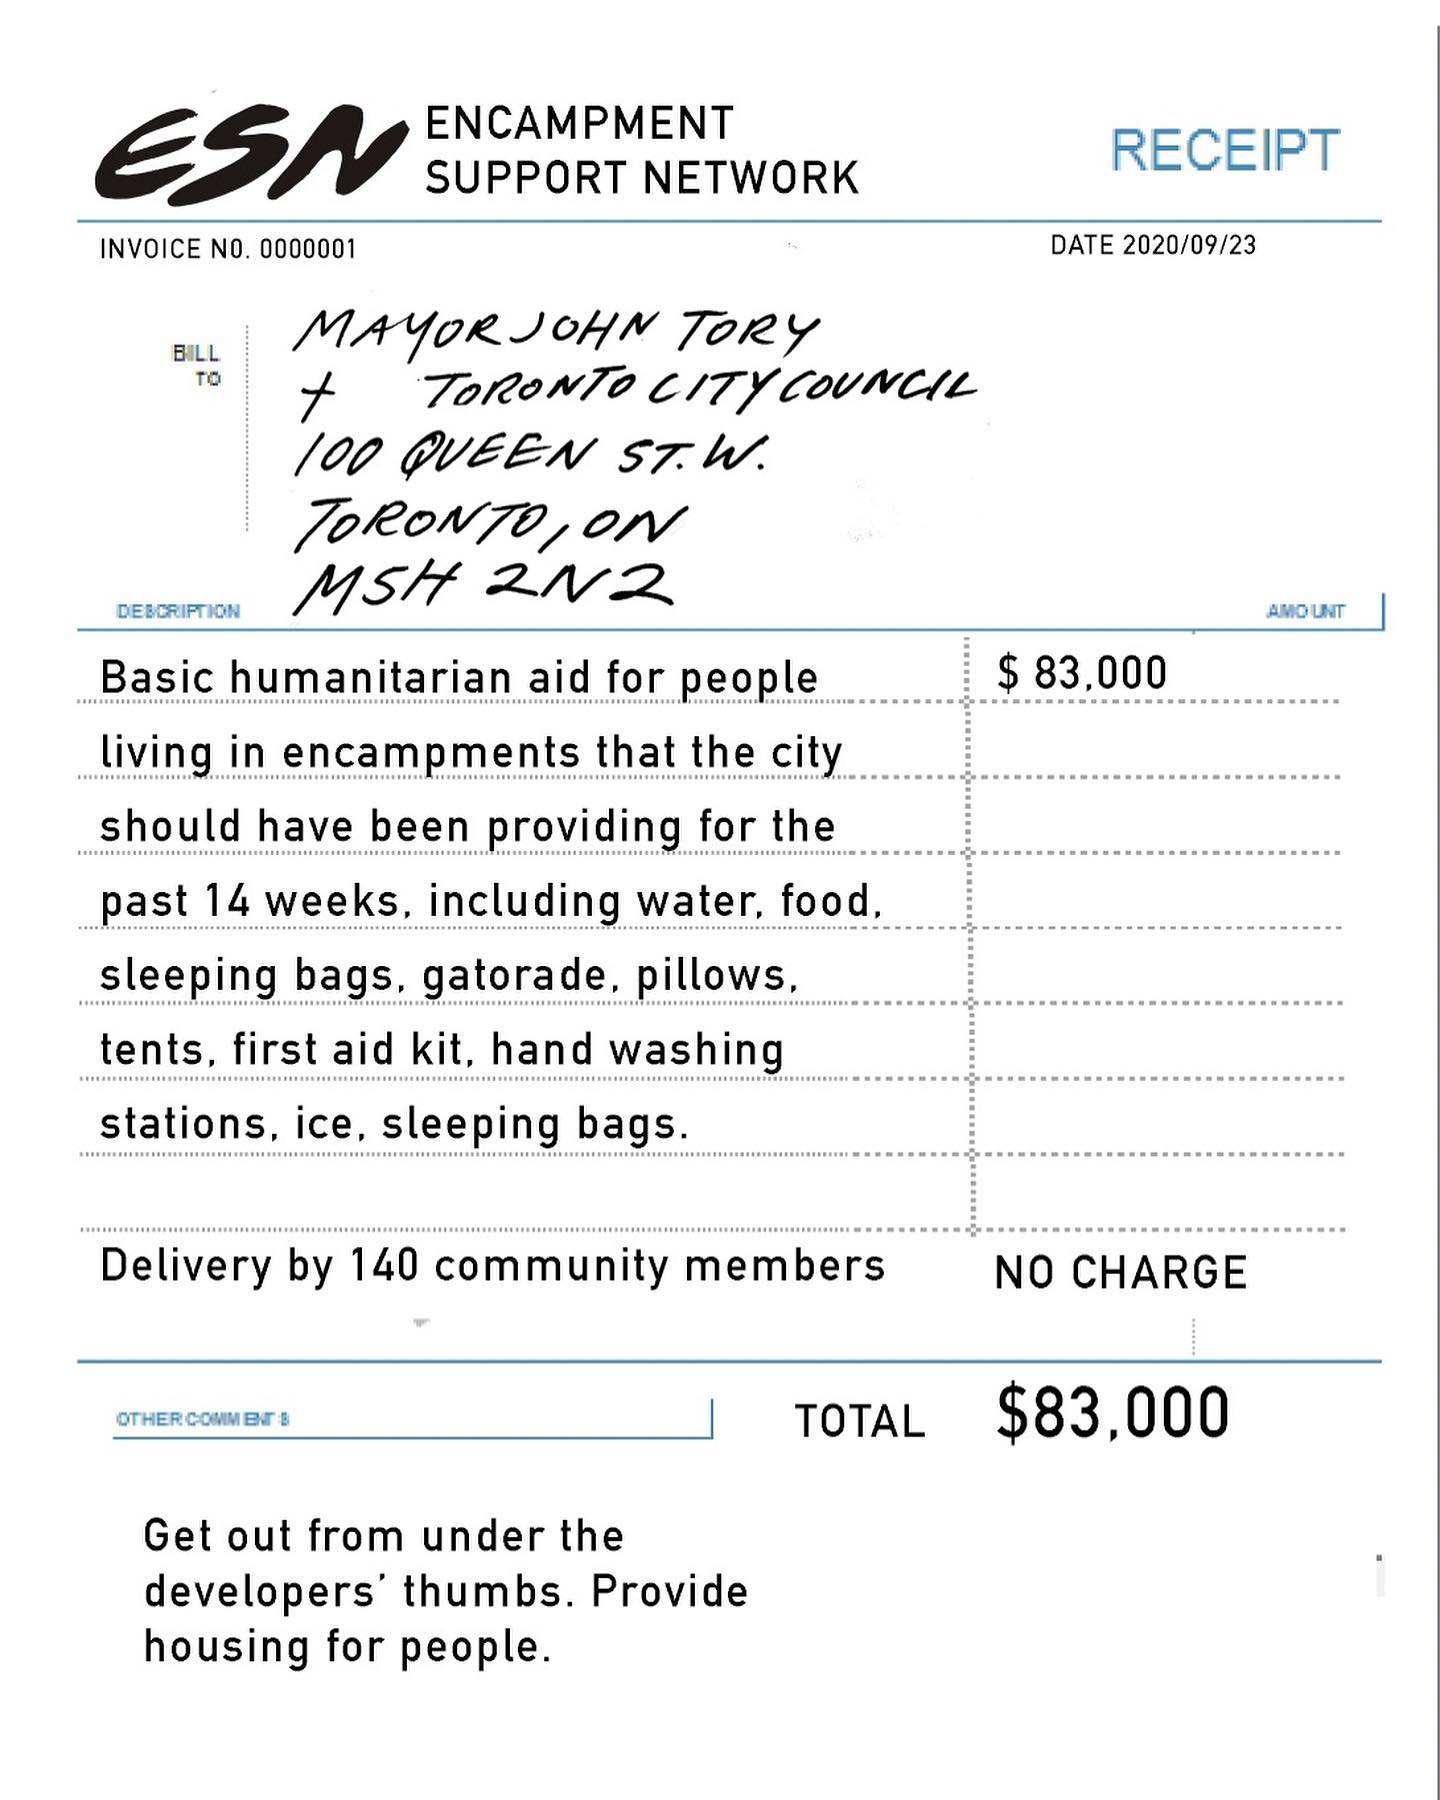 ESN ENCAMPMENT
SUPPORT NETWORK
RECEIPT
INVOICE NO. 0000001
DATE 2020/09/23
BILL
TO
MAYOR JOHN TORY
+ TORONTO CITY COUNCIL
100 QUEEN ST. W.
TORONTO, ON
M5H 2N2
DESCRIPTION
AMOUNT
Basic humanitarian aid for people $ 83,000
living in encampments that the city
should have been providing for the
past 14 weeks, including water, food,
sleeping bags, gatorade, pillows,
tents, first aid kit, hand washing
stations, ice, sleeping bags.
Delivery by 140 community members NO CHARGE
OTHER COMMENTS
TOTAL $83,000
Get out from under the
developers' thumbs. Provide
housing for people.